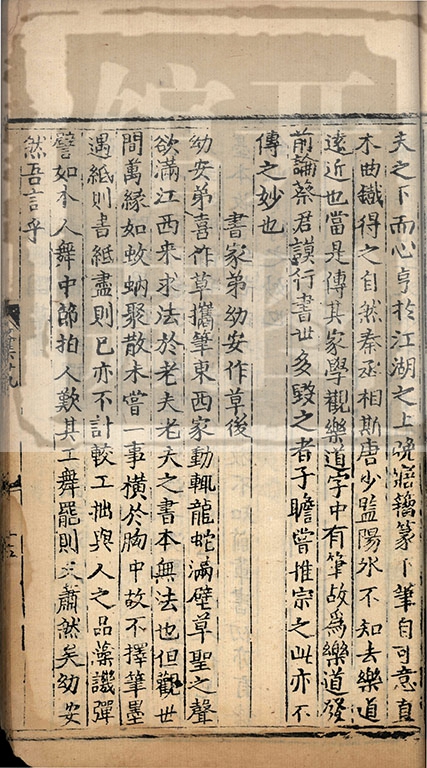 夫之下而心亨於江湖之上晩寤籀篆下筆自可意直
木曲鐵得之自然秦丞相斯唐少監陽氷不知去樂道
遠近也當是傳其家學觀樂道字中有筆故為樂道發
前論蔡君謨行書世多毀之者子瞻嘗推宗之此亦不
傳之妙也
書家弟幼安作草後
幼安弟喜作草攜筆東西家動輒龍蛇滿壁草聖之聲
欲滿江西来求法於老夫老夫之書本無法也但觀世
間萬緣如蚊蚋聚散未嘗一事横於胸中故不擇筆墨
遇紙則書紙盡則已亦不計較工拙與人之品藻譏彈
譬如木人舞中節拍人歎其工舞罷則又蕭然矣幼安
然吾言乎